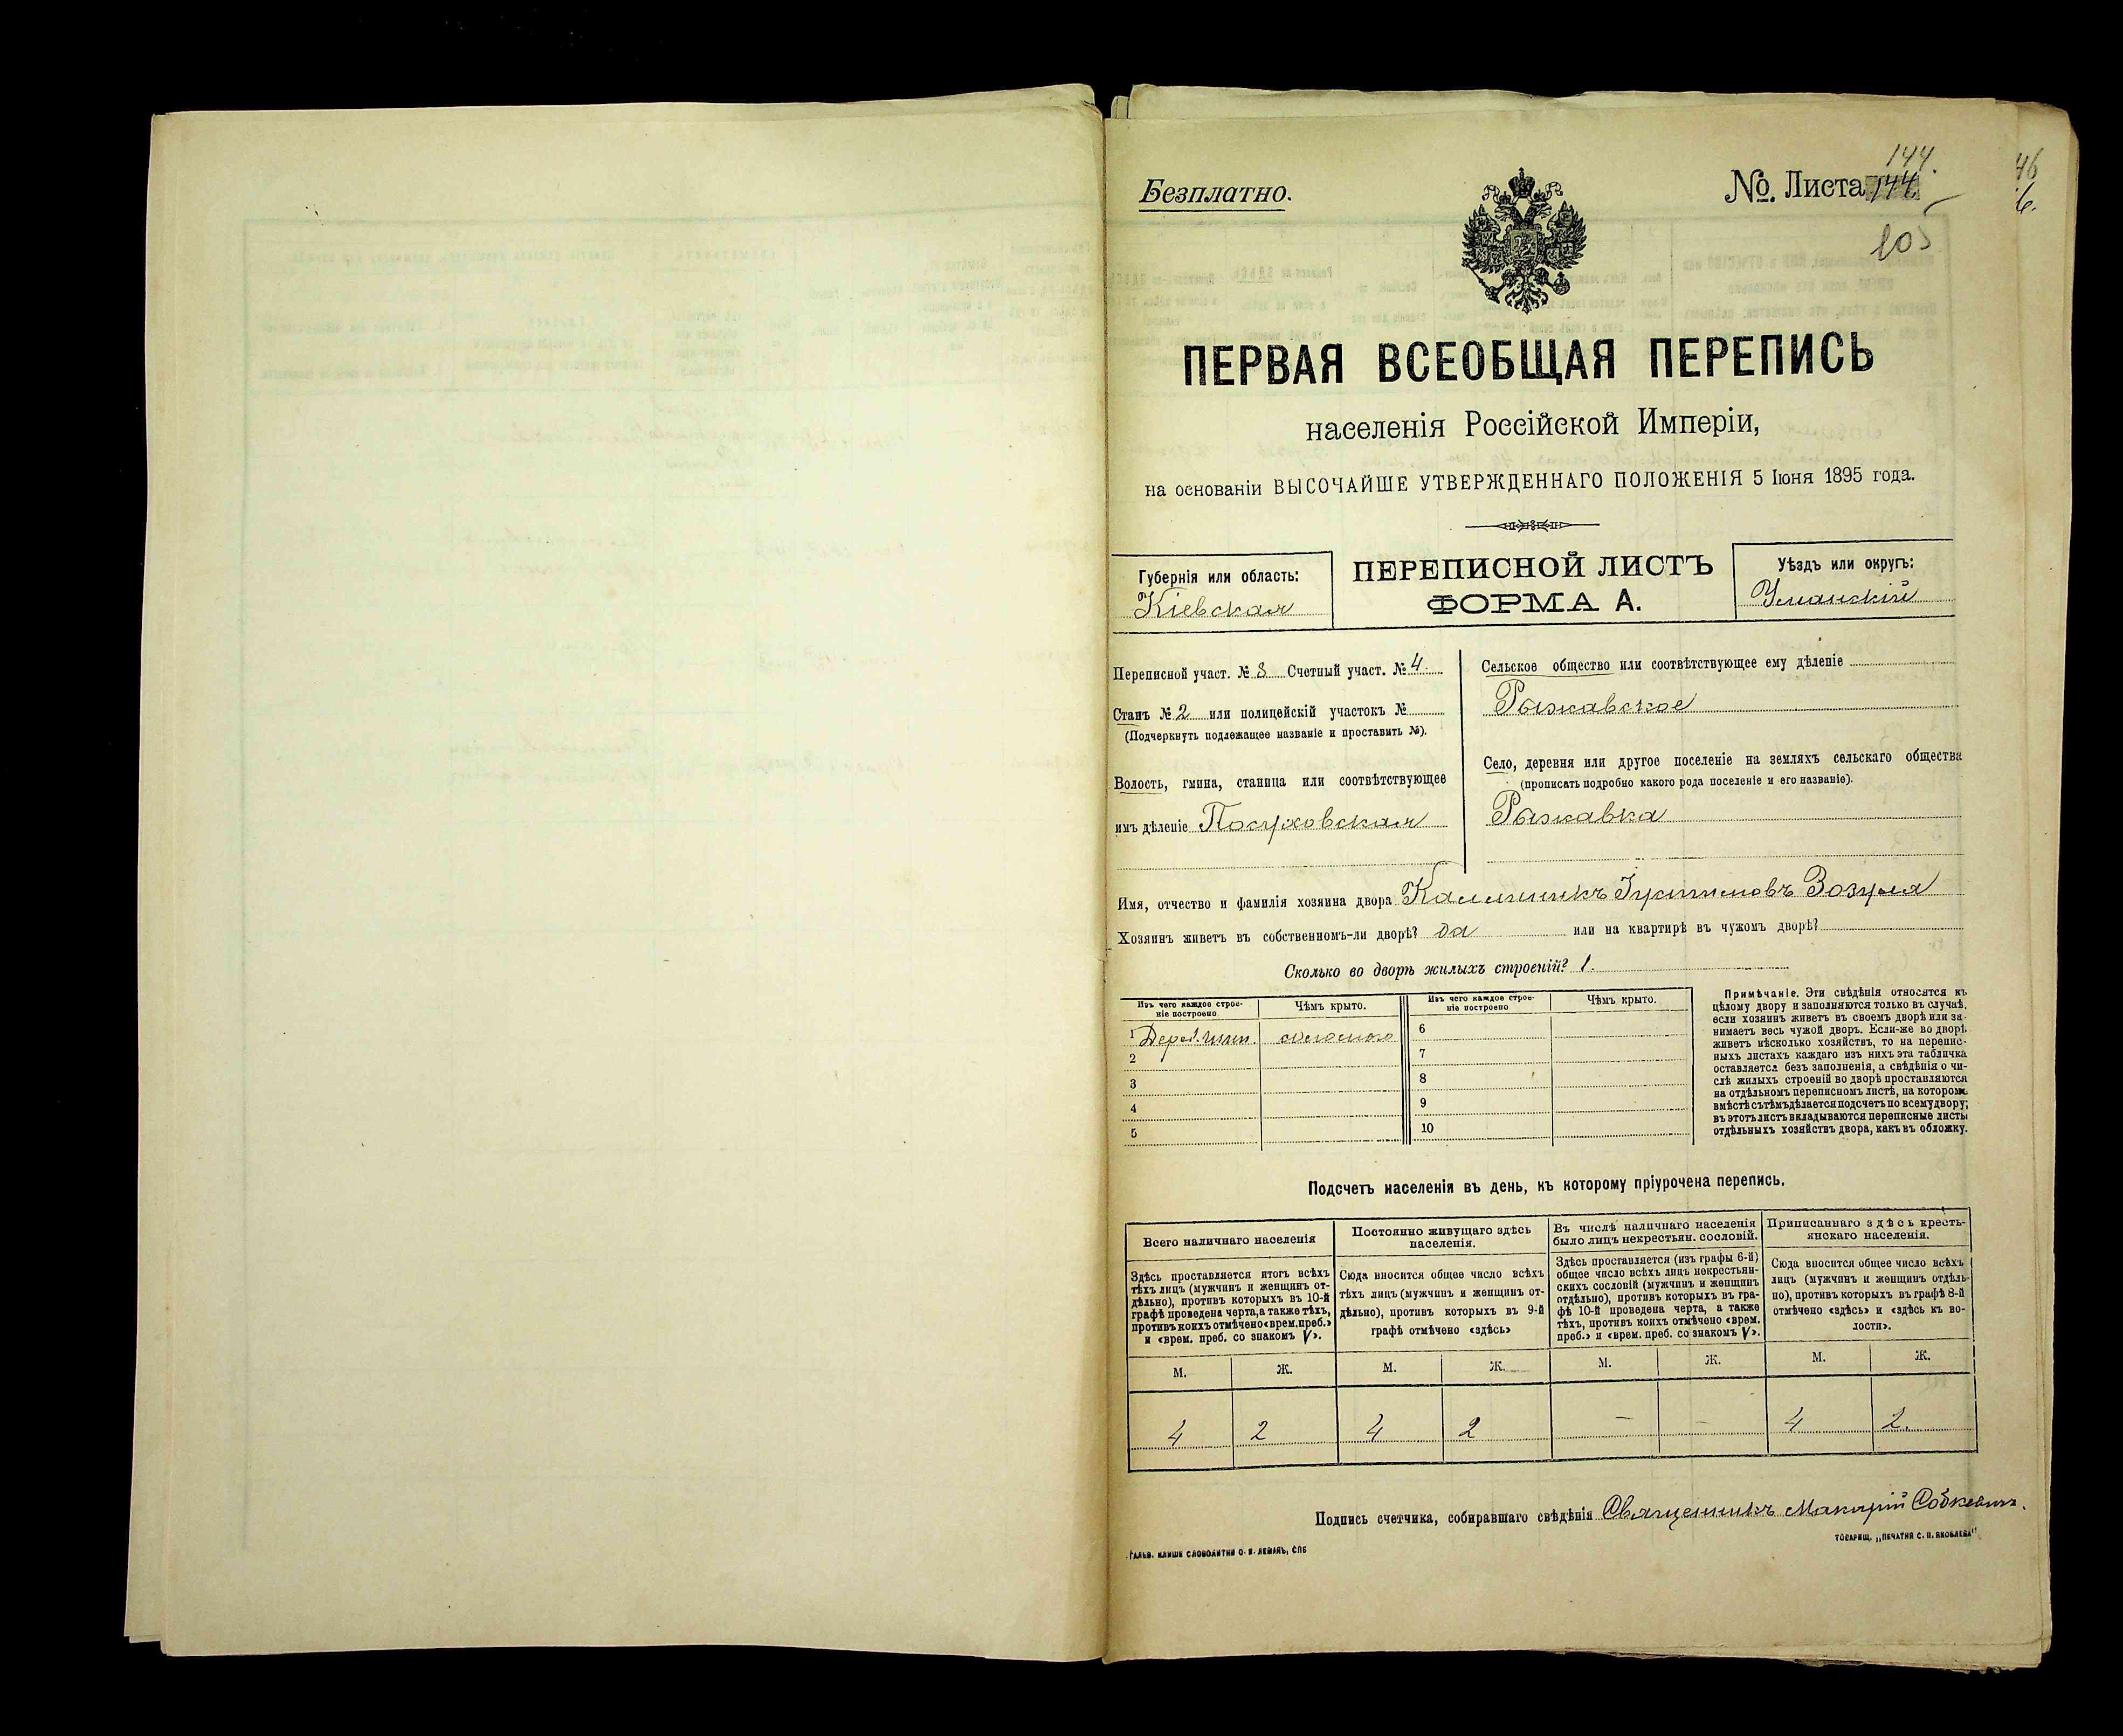 144.
Безплатно.
№. Листа 144
105
ПЕРВАЯ ВСЕОБЩАЯ ПЕРЕПИСЬ
населенія Россійской Имперіи,
на основаніи ВЫСОЧАЙШЕ УТВЕРЖДЕННАГО ПОЛОЖЕНІЯ 5 Іюня 1895 года.
Губернія или область:
Кіевская
ПЕРЕПИСНОЙ ЛИСТЪ
ФОРМА А.
Уѣздъ или округъ:
Уманскій
Переписной участ. № 8 Счетный участ. № 4.
Станъ № 2 или полицейскій участокъ №
(Подчеркнуть подлежащее названіе и проставить №).
Волость, гмина, станица или соотвѣтствующее
имъ дѣленіе Посуховская
Сельское общество или соотвѣтствующее ему дѣленіе
Рыжавское
Село, деревня или другое поселеніе на земляхъ сельскаго общества
(прописать подробно какого рода поселеніе и его названіе).
Рыжавка
Имя, отчество и фамилія хозяина двора Каллиникъ Іустиновъ Зозуля
Хозяинъ живетъ въ собственномъ-ли дворѣ? да или на квартирѣ въ чужомъ дворѣ?
Сколько во дворѣ жилыхъ строеній? 1.
Изъ чего каждое строе-
ніе построено
Чѣмъ крыто.
Изъ чего каждое строе-
ніе построено
Чѣмъ крыто.
1 соломою
2
3
4
5
6
7
8
9
10
Примѣчаніе. Эти свѣдѣнія относятся къ
цѣлому двору и заполняются только въ случаѣ,
если хозяинъ живетъ въ своемъ дворѣ или за-
нимаетъ весь чужой дворъ. Если-же во дворѣ
живетъ нѣсколько хозяйствъ, то на перепис-
ныхъ листахъ каждаго изъ нихъ эта табличка
оставляется безъ заполненія, а свѣдѣнія о чи-
слѣ жилыхъ строеній во дворѣ проставляются
на отдѣльномъ переписномъ листѣ, на которомъ
вмѣстѣ съ тѣмъ дѣлается подсчетъ по всему двору;
въ этотъ листъ вкладываются переписные листы
отдѣльныхъ хозяйствъ двора, какъ въ обложку.
Подсчетъ населенія въ день, къ которому пріурочена перепись.
Всего наличнаго населенія
Здѣсь проставляется итогъ всѣхъ
тѣхъ лицъ (мужчинъ и женщинъ от-
дѣльно), противъ которыхъ въ 10-й
графѣ проведена черта, а также тѣхъ,
противъ коихъ отмѣчено «врем. преб.»
и «врем. преб. со знакомъ V».
Постоянно живущаго здѣсь
населенія.
Сюда вносится общее число всѣхъ
тѣхъ лицъ (мужчинъ и женщинъ от-
дѣльно), противъ которыхъ въ 9-й
графѣ отмѣчено «здѣсь»
Въ числѣ наличнаго населенія
было лицъ некрестьян. сословій.
Здѣсь проставляется (изъ графы 6-й)
общее число всѣхъ лицъ некрестьян-
скихъ сословій (мужчинъ и женщинъ
отдѣльно), противъ которыхъ въ гра-
фѣ 10-й проведена черта, а также
тѣхъ, противъ коихъ отмѣчено «врем.
преб.» и «врем. преб. со знакомъ V».
Приписаннаго здѣсь кресть-
янскаго населенія.
Сюда вносится общее число всѣхъ
лицъ (мужчинъ и женщинъ отдѣль-
но), противъ которыхъ въ графѣ 8-й
отмѣчено «здѣсь» и «здѣсь къ во-
лости».
М. Ж. М. Ж. М. Ж. М. Ж.
4 2 4 2 — — 4 2.
Подпись счетчика, собиравшаго свѣдѣнія Священникъ Макарій Собкевичъ.
ГАЛЬВ. КЛИШЕ СЛОВОЛИТНИ О. И. ЛЕМАНЪ, СПБ
ТОВАРИЩ. „ПЕЧАТНЯ С. П. ЯКОВЛЕВА"